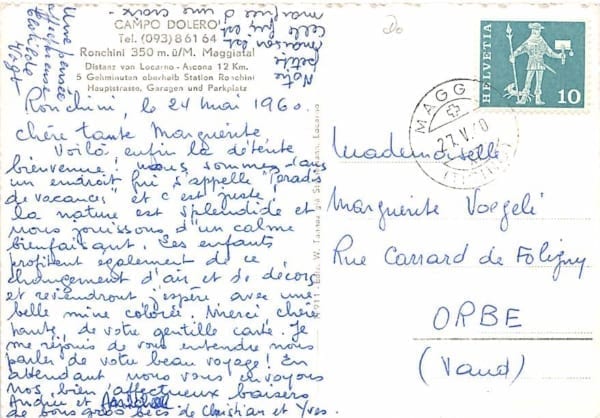 CAMPO DOLERO
Tel. (093) 8 61 64
Ronchini 350 m.ü/M. Maggiatal
Distanz von Locarno - Ascona 12 Km.
5 Gehminuten oberhalb Station Ronchini
Hauptstrasse, Garagen und Parkplatz
Notre
petite
maison est
celle qui est
marquée d'une croix.
Une pensée
affectueuse
Ronchini, le 24 mai 1960.
chère tante Marguerite,
Voilà enfin la détente
bienvenue! nous sommes dans
un endroit qui s'appelle "Paradis
de vacances" et c'est juste,
la nature est splendide et
nous jouissons d'un calme
bienfaisant. Les enfants
profitent également de ce
changement d'air et de décors
et reviendront j'espère avec une
belle mine colorée. Merci, chère
tante, de votre gentille carte. Je
me réjouis de vous entendre nous
parler de votre beau voyage! En
attendant nous vous envoyons
nos bien affectueux baisers
Andrée et
de bons gros becs de Christian et Yves.
HELVETIA
10
MAGG
27.V.60
(TICINO)
Mademoiselle
Marguerite Voegeli
Rue Carrard de Foligny
ORBE
(Vaud)